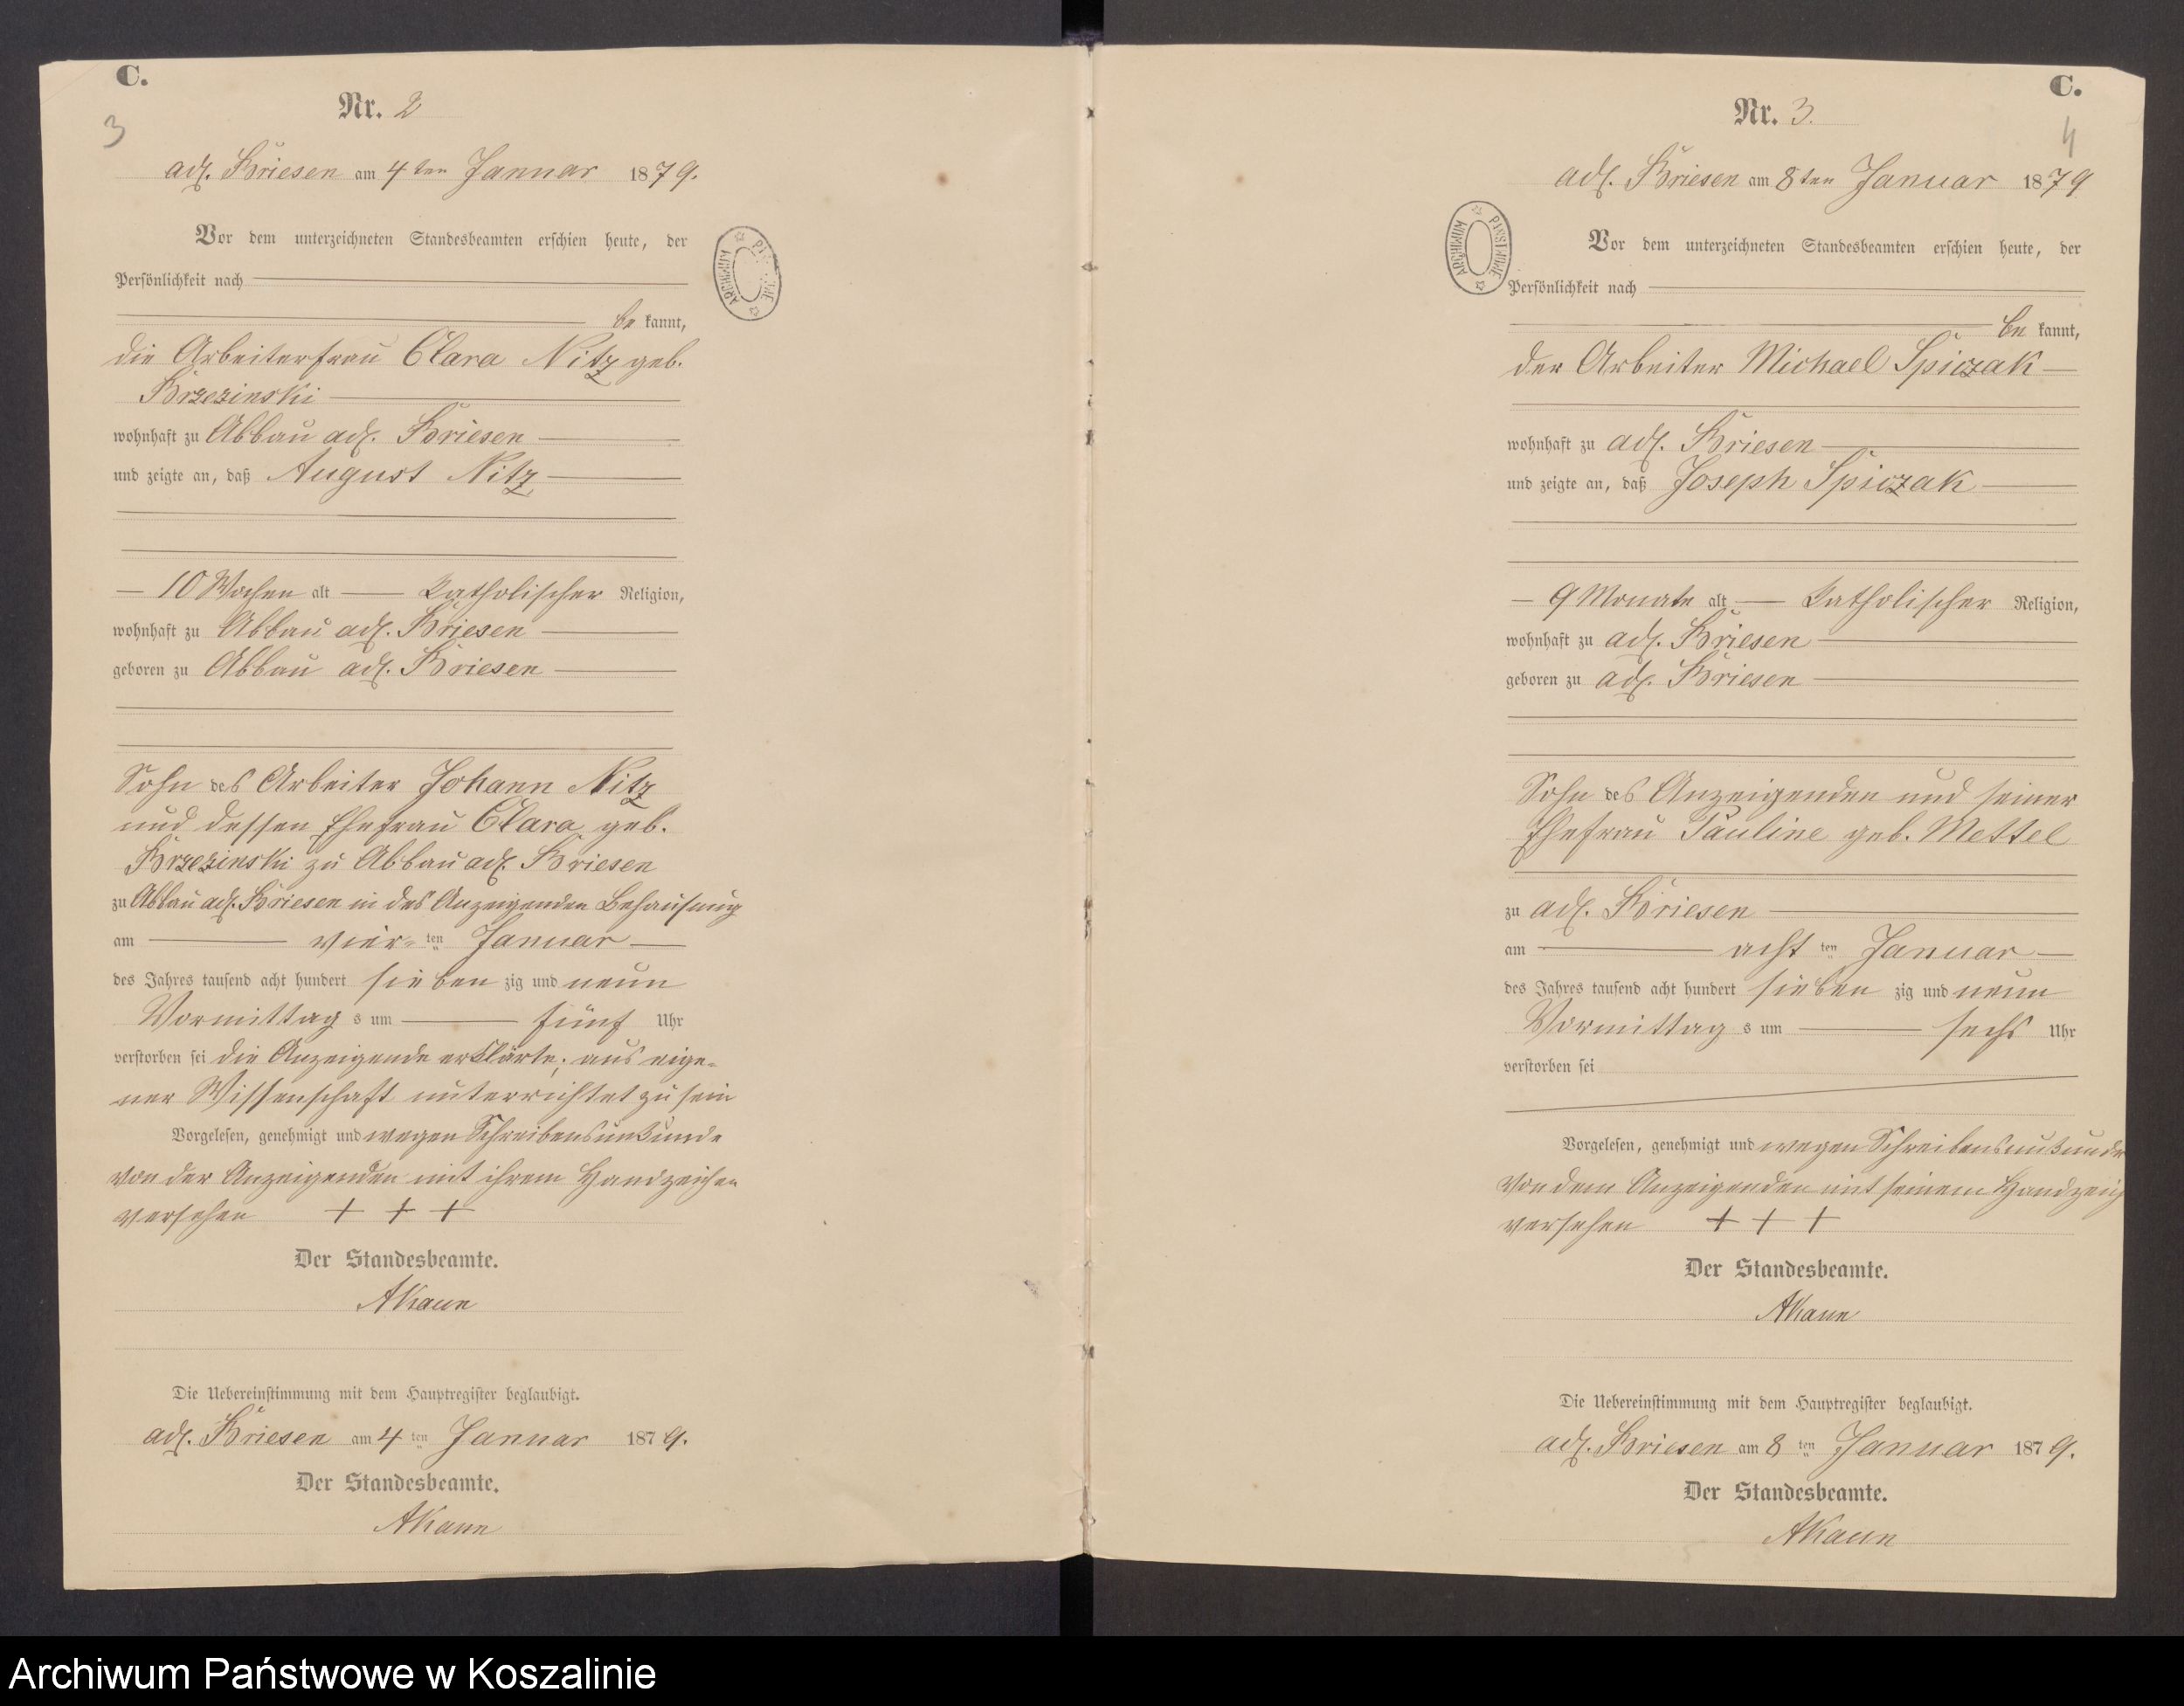 C.
3
Nr. 2
adl. Briesen am 4ten Januar 1879.
Vor dem unterzeichneten Standesbeamten erschien heute, der
Persönlichkeit nach
be kannt,
die Arbeiterfrau Clara Nitz geb.
Brzezinski
wohnhaft zu Abbau adl. Briesen
und zeigte an, daß August Nitz
10 Wochen alt katholischer Religion,
wohnhaft zu Abbau adl. Briesen
geboren zu Abbau adl. Briesen
Sohn des Arbeiter Johann Nitz
und dessen Ehefrau Clara geb.
Brzezinski zu Abbau adl. Briesen
zu Abbau adl. Briesen in des Anzeigenden Behausung
am vier ten Januar
des Jahres tausend acht hundert sieben zig und neun
Vormittag s um fünf Uhr
verstorben sei die Anzeigende erklärte, aus eige-
ner Wissenschaft unterrichtet zu sein
Vorgelesen, genehmigt und wegen Schreibensunkunde
von der Anzeigenden mit ihrem Handzeichen
versehen + + +
Der Standesbeamte.
AKaun
Die Uebereinstimmung mit dem Hauptregister beglaubigt.
adl. Briesen am 4 ten Januar 1879.
Der Standesbeamte.
AKaun
ARCHIWUM
C.
4
Nr. 3.
adl. Briesen am 8ten Januar 1879
Vor dem unterzeichneten Standesbeamten erschien heute, der
Persönlichkeit nach
be kannt,
der Arbeiter Michael Spiczak
wohnhaft zu adl. Briesen
und zeigte an, daß Joseph Spiczak
9 Monate alt katholischer Religion,
wohnhaft zu adl. Briesen
geboren zu adl. Briesen
Sohn des Anzeigenden und seiner
Ehefrau Pauline geb. Mettel
zu adl. Briesen
am acht ten Januar
des Jahres tausend acht hundert sieben zig und neun
Vormittag s um sechs Uhr
verstorben sei
Vorgelesen, genehmigt und wegen Schreibensunkunde
von dem Anzeigenden mit seinem Handzeich
versehen + + +
Der Standesbeamte.
AKaun
Die Uebereinstimmung mit dem Hauptregister beglaubigt.
adl. Briesen am 8 ten Januar 1879.
Der Standesbeamte.
AKaun
ARCHIWUM PAŃSTWOWE
Archiwum Państwowe w Koszalinie